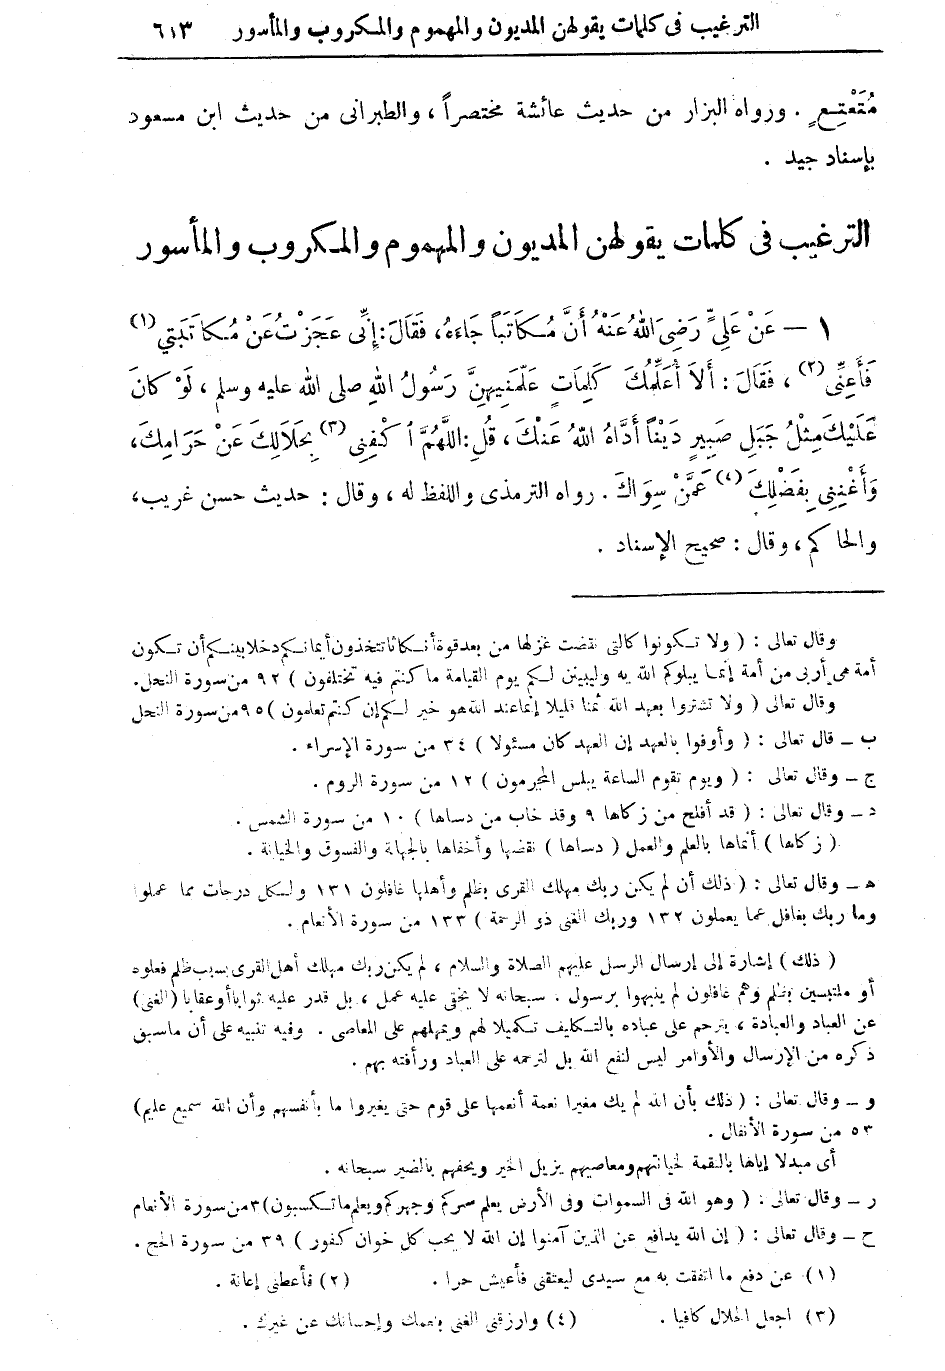 الترغيب فى كلمات يقولهن المديون والمهموم والمكروب والمأسور ٦١٣
مُتَعْتِعٍ . ورواه البزار من حديث عائشة مختصراً ، والطبرانى من حديث ابن مسعود
بإسناد جيد .
الترغيب فى كلمات يقولهن المديون والمهموم والمكروب والمأسور
١ – عَنْ عَلِيٍّ رَضِىَ اللهُ عَنْهُ أَنَّ مُكَاتَبًا جَاءَهُ، فَقَالَ: إِنِّى عَجَزْتُ عَنْ مُكَاتَبَتِي (١)
فَأَعِنِّى (٢) ، فَقَالَ : أَلاَ أُعَلِّمُكَ كَلِمَاتٍ عَلَّمَنِيهِنَّ رَسُولُ اللهِ صلى الله عليه وسلم ، لَوْ كانَ
عَلَيْكَ مِثْلُ جَبَلِ صَبِيرٍ دَيْنًا أَدَّاهُ اللهُ عَنْكَ ، قُلِ: اللَّهُمَّ ٱكْفِنِى (٣) بِحَلاَلِكَ عَنْ حَرَامِكَ،
وَأَغْنِنِى بِفَضْلِكَ (٤) عَمَّنْ سِوَاكَ . رواه الترمذى واللفظ له ، وقال : حديث حسن غريب،
والحاكم ، وقال : صحيح الإسناد .
وقال تعالى : ( ولا تكونوا كالتى نقضت غزلها من بعد قوة أنكاثا تتخذون أيمانكم دخلا بينكم أن تكون
أمة هى أربى من أمة إنما يبلوكم الله به وليبينن لكم يوم القيامة ما كنتم فيه تختلفون ) ٩٢ من سورة النحل.
وقال تعالى ( ولا تشتروا بعهد الله ثمنا قليلا إنما عند الله هو خير لكم إن كنتم تعلمون ) ٩٥ من سورة النحل
ب – قال تعالى : ( وأوفوا بالعهد إن العهد كان مسئولا ) ٣٤ من سورة الإسراء .
ج – وقال تعالى : ( ويوم تقوم الساعة يبلس المجرمون ) ١٢ من سورة الروم .
د – وقال تعالى : ( قد أفلح من زكاها ٩ وقد خاب من دساها ) ١٠ من سورة الشمس .
( زكاها ) أنماها بالعلم والعمل ( دساها ) نقضها وأخفاها بالجهالة والفسوق والخيانة .
ه – وقال تعالى : ( ذلك أن لم يكن ربك مهلك القرى بظلم وأهلها غافلون ١٣١ ولكل درجات مما عملوا
وما ربك بغافل عما يعملون ١٣٢ وربك الغنى ذو الرحمة ) ١٣٣ من سورة الأنعام .
( ذلك ) إشارة إلى إرسال الرسل عليهم الصلاة والسلام ، لم يكن ربك مهلك أهل القرى بسبب ظلم فعلوه
أو ملتبسين بظلم وهم غافلون لم ينبهوا برسول . سبحانه لا يخفى عليه عمل ، بل قدر عليه ثوابا أو عقابا (الغنى)
عن العباد والعبادة ، يترحم على عباده بالتكليف تكميلا لهم ويمهلهم على المعاصى . وفيه تنبيه على أن ماسبق
ذكره من الإرسال والأوامر ليس لنفع الله بل لترحمه على العباد ورأفته بهم .
و – وقال تعالى : ( ذلك بأن الله لم يك مغيرا نعمة أنعمها على قوم حتى يغيروا ما بأنفسهم وأن الله سميع عليم)
٥٣ من سورة الأنفال .
أى مبدلا إياها بالنقمة لخيانتهم ومعاصيهم يزيل الخير ويحفهم بالضير سبحانه .
ر – وقال تعالى : ( وهو الله فى السموات وفى الأرض يعلم سركم وجهركم ويعلم ما تكسبون) ٣ من سورة الأنعام
ح – وقال تعالى : ( إن الله يدافع عن الذين آمنوا إن الله لا يحب كل خوان كفور ) ٣٩ من سورة الحج .
(١) عن دفع ما اتفقت به مع سيدى ليعتقنى فأعيش حرا . (٢) فأعطنى إعانة .
(٣) اجعل الحلال كافيا . (٤) وارزقنى الغنى بنعمك وإحسانك عن غيرك .